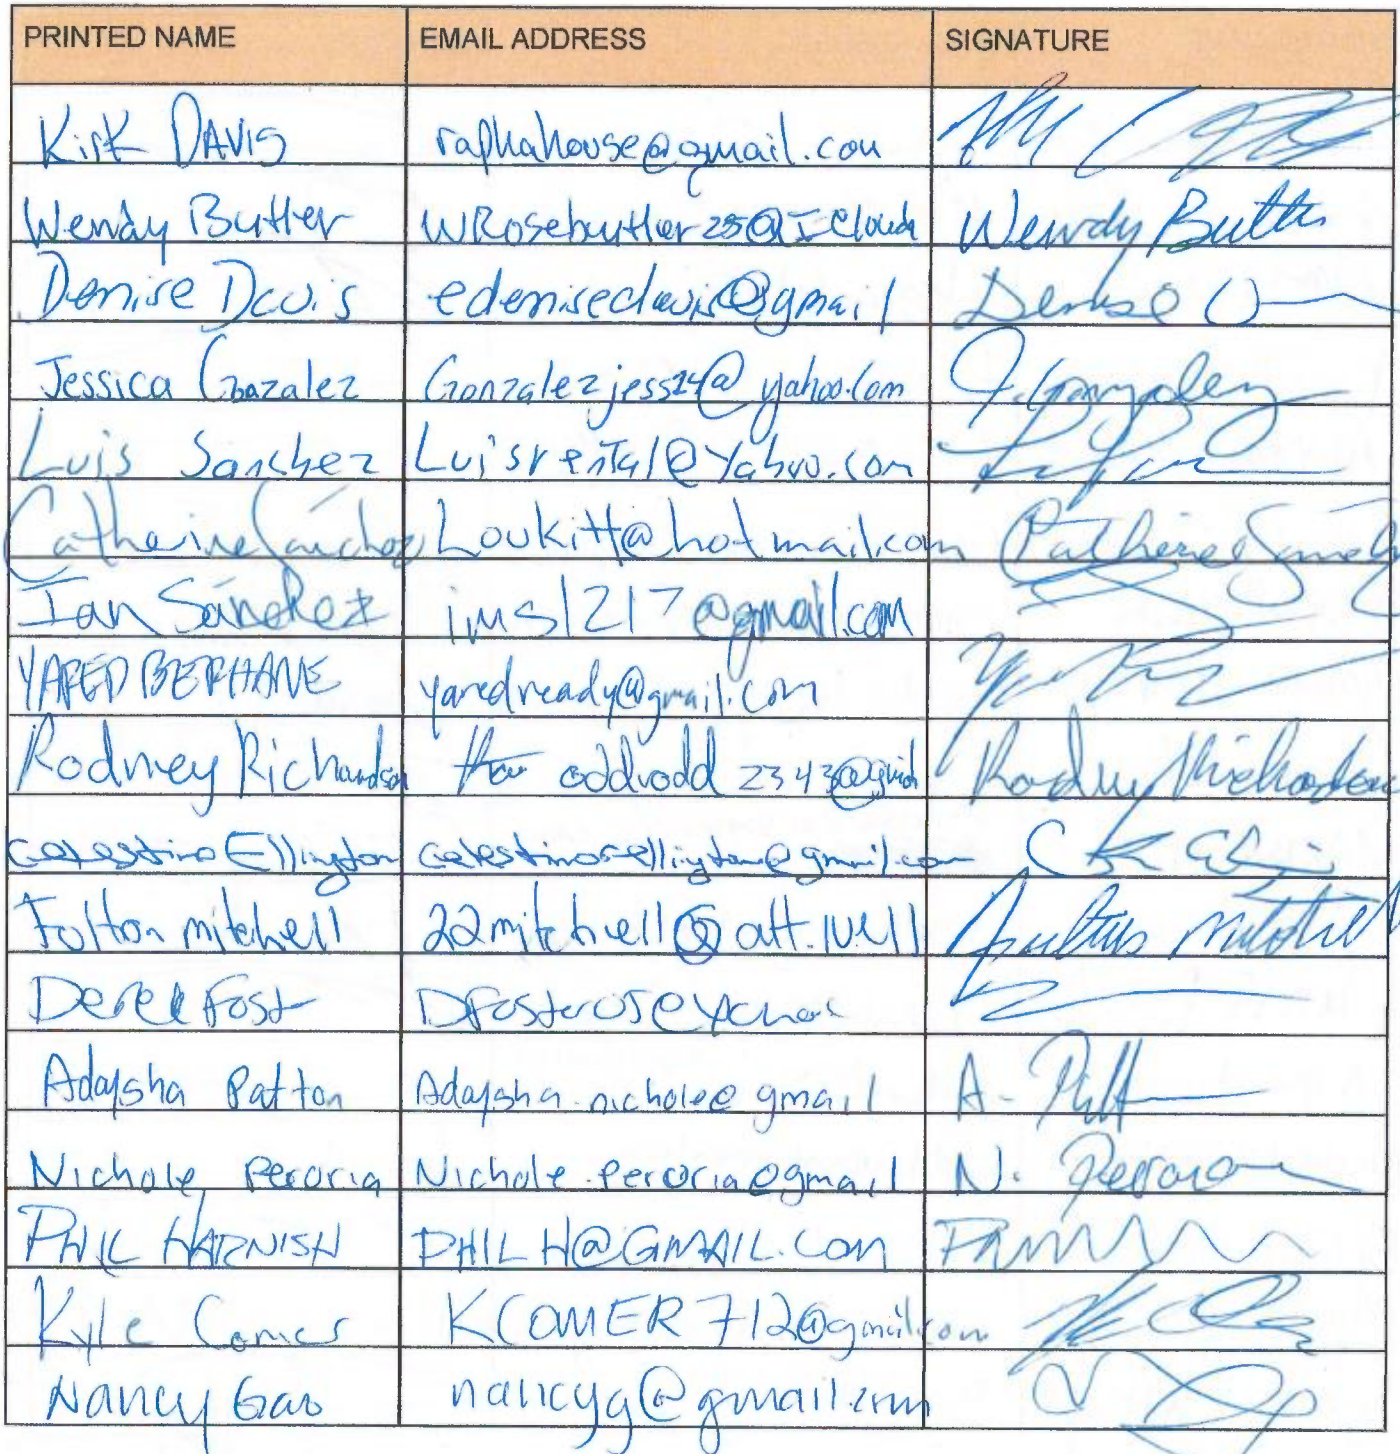 PRINTED NAME EMAIL ADDRESS SIGNATURE
Kirk DAVIS raphahouse@gmail.com
Wendy Butler WRosebutler25@I-Cloud Wendy Butler
Denise Davis edenisedavis@gmail Denise
Jessica Gonzalez Gonzalezjess24@yahoo.com J. Gonzalez
Luis Sanchez Luisrental@Yahoo.com
Catherine Sánchez Loukitt@hotmail.com Catherine Sanchez
Ian Sánchez ims1217@gmail.com
YARED BERHANE yaredready@gmail.com
Rodney Richardson oddrodd2343@gmail Rodney Richardson
Celestino Ellington celestinorellington@gmail.com
Fulton mitchell 22mitchell@att. Fulton Mitchell
Derek Fost
Adaysha Patton Adaysha.nichole@gmail A. Patt
Nichole Peroria Nichole.peroria@gmail N. Peroria
PHIL HARNISH PHILH@GMAIL.COM
Kyle Comer KCOMER712@gmail.com
Nancy Gao nancyg@gmail.com